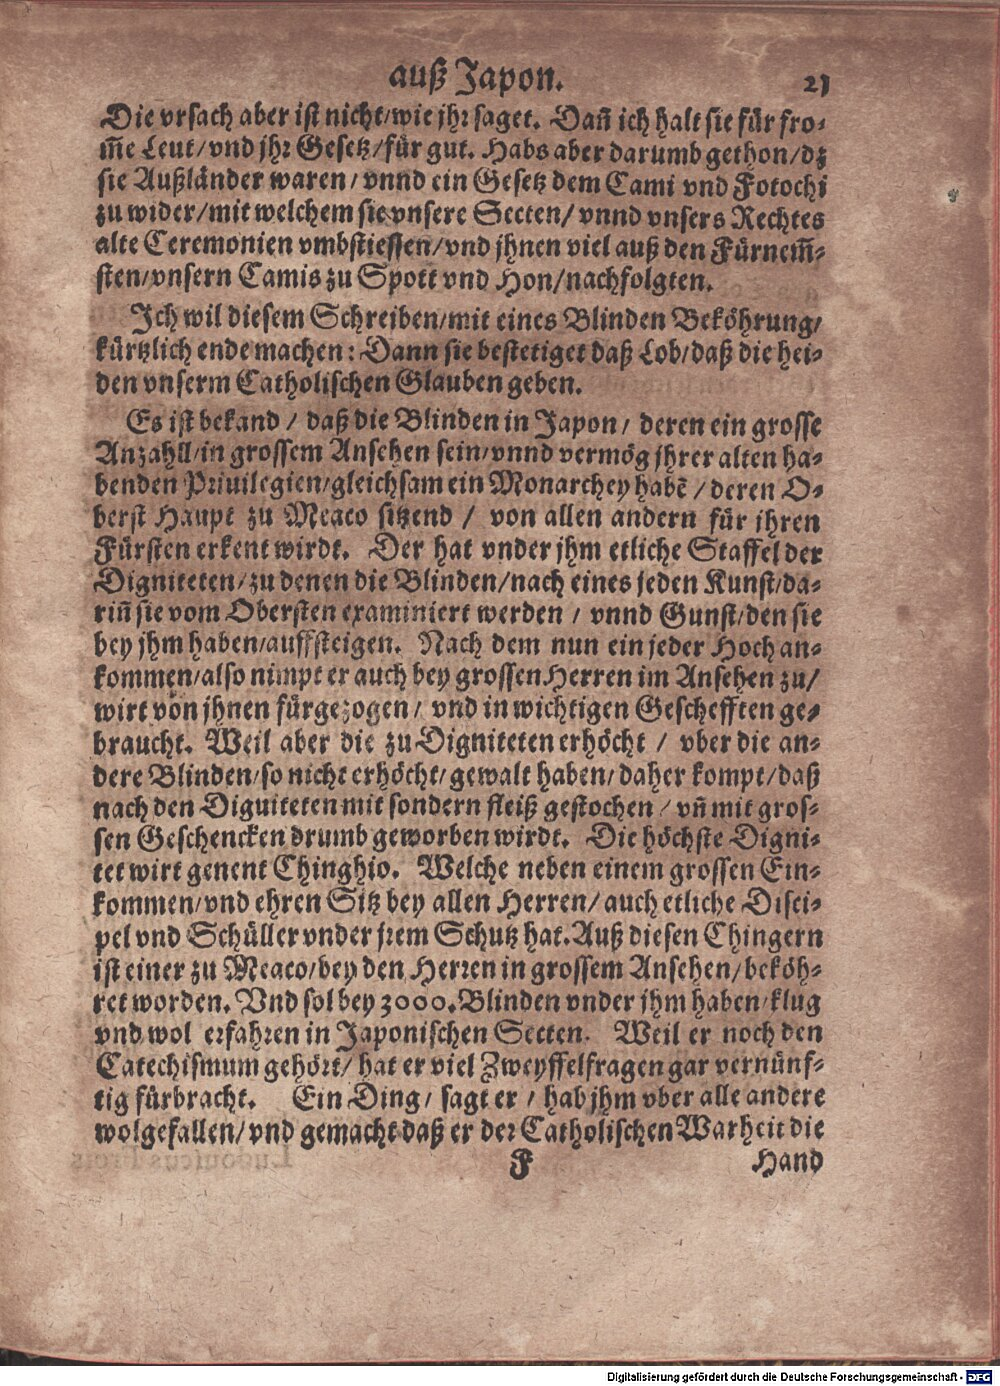 auß Japon. 21
Die vrsach aber ist nicht/wie jhr saget. Dañ ich halt sie für fro-
m̃e Leut/vnd jhr Gesetz/für gut. Habs aber darumb gethon/dz
sie Außländer waren/vnnd ein Gesetz dem Cami vnd Fotochi
zu wider/mit welchem sie vnsere Secten/vnnd vnsers Rechtes
alte Ceremonien vmbstiessen/vnd jhnen viel auß den Fürnem̃-
sten/vnsern Camis zu Spott vnd Hon/nachfolgten.
Ich wil diesem Schreiben/mit eines Blinden Beköhrung/
kürtzlich ende machen: Dann sie bestetiget daß Lob/daß die hei-
den vnserm Catholischen Glauben geben.
Es ist bekand / daß die Blinden in Japon/ deren ein grosse
Anzahll/in grossem Ansehen sein/vnnd vermög jhrer alten ha-
benden Priuilegien/gleichsam ein Monarchey habẽ / deren O-
berst Haupt zu Meaco sitzend / von allen andern für ihren
Fürsten erkent wirdt. Der hat vnder jhm etliche Staffel der
Digniteten/zu denen die Blinden/nach eines jeden Kunst/da-
riñ sie vom Obersten examiniert werden / vnnd Gunst/den sie
bey jhm haben/auffsteigen. Nach dem nun ein jeder Hoch an-
kommen/also nimpt er auch bey grossen Herren im Ansehen zu/
wirt von jhnen fürgezogen/ vnd in wichtigen Geschefften ge-
braucht. Weil aber die zu Digniteten erhöcht / vber die an-
dere Blinden/so nicht erhöcht/gewalt haben/daher kompt/daß
nach den Diguiteten mit sondern fleiß gestochen / vñ mit gros-
sen Geschencken drumb geworben wirdt. Die höchste Digni-
tet wirt genent Chinghio. Welche neben einem grossen Ein-
kommen/vnd ehren Sitz bey allen Herren/auch etliche Disci-
pel vnd Schüller vnder jrem Schutz hat. Auß diesen Chingern
ist einer zu Meaco/bey den Herren in grossem Ansehen/beköh-
ret worden. Vnd sol bey 3000. Blinden vnder jhm haben/klug
vnd wol erfahren in Japonischen Secten. Weil er noch den
Catechismum gehört/ hat er viel Zweyffelfragen gar vernünf-
tig fürbracht. Ein Ding/ sagt er / hab jhm vber alle andere
wolgefallen/vnd gemacht daß er der Catholischen Warheit die
F Hand
Digitalisierung gefördert durch die Deutsche Forschungsgemeinschaft - DFG